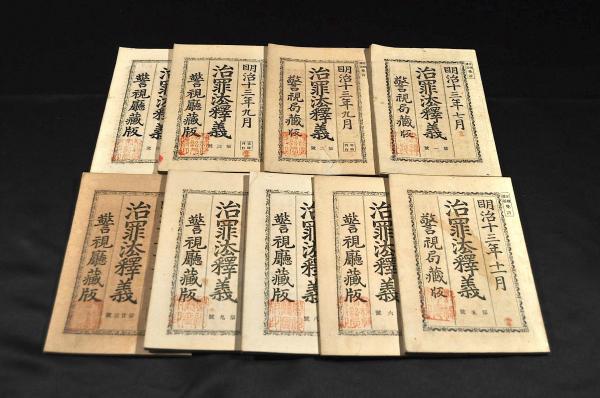 明治十三年七月
治罪法釋義
警視局藏版
第一號
明治十三年九月
治罪法釋義
警視局藏版
第二號
明治十三年九月
治罪法釋義
警視廳藏版
第三號
治罪法釋義
警視廳藏版
號
明治十三年十一月
治罪法釋義
警視局藏版
第五號
治罪法釋義
警視廳藏版
六號
治罪法釋義
警視廳藏版
八號
治罪法釋義
警視廳藏版
第九號
治罪法釋義
警視廳藏版